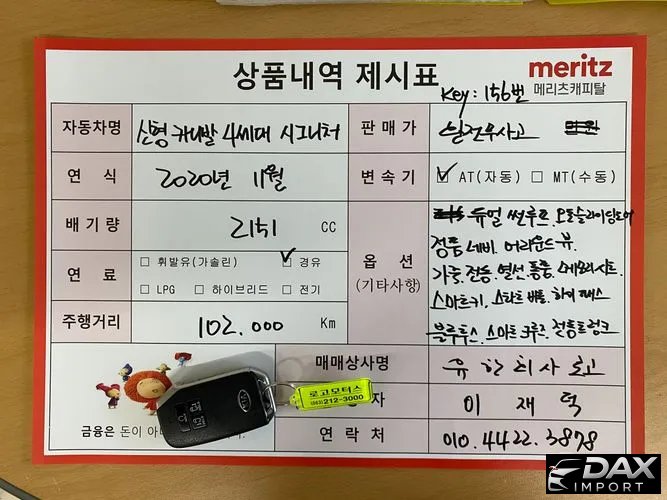 상품내역 제시표
meritz
메리츠캐피탈
Key: 156번
자동차명 신형 카니발 4세대 시그니처
판매가 완전무사고 만원
연식 2020년 11월
변속기 ☑ AT(자동) □ MT(수동)
배기량 2151 CC
연료 □ 휘발유(가솔린) ☑ 경유
□ LPG □ 하이브리드 □ 전기
옵션
(기타사항)
듀얼 썬루프. 오토슬라이딩도어
정품 네비. 어라운드 뷰.
가죽. 전동. 열선. 통풍. 메모리시트.
스마트키. 스타트 버튼. 하이패스
블루투스. 스마트 크루즈. 전동트렁크
주행거리 102.000 Km
매매상사명 유한회사 로고
자 이재덕
연락처 010.4422.3878
금융은 돈이 아
로고모터스
212-3000
KIA
DAX
IMPORT